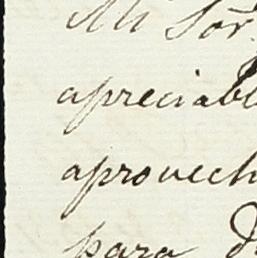 Mi Sor.
apreciabl
aprovech
para